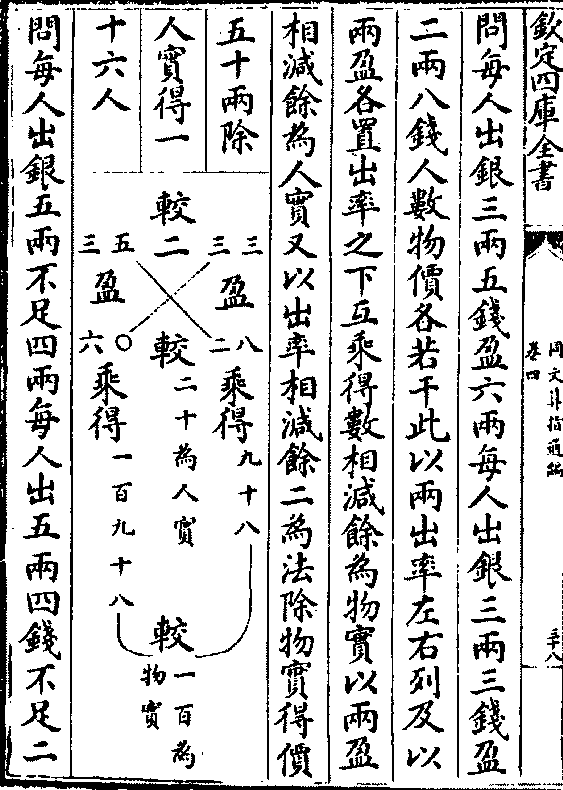 欽定四庫全書
同文算指通編
卷四
三十八
問每人出銀三兩五錢盈六兩每人出銀三兩三錢盈
二兩八錢人數物價各若干此以兩出率左右列及以
兩盈各置出率之下互乘得數相減餘為物實以兩盈
相減餘為人實又以出率相減餘二為法除物實得價
五十兩除
人實得一
十六人
三三
盈
二八
乘得
九十八
較二
較
二十為人實
較
一百為
物實
三五
盈
六〇
乘得
一百九十八
問每人出銀五兩不足四兩每人出五兩四錢不足二